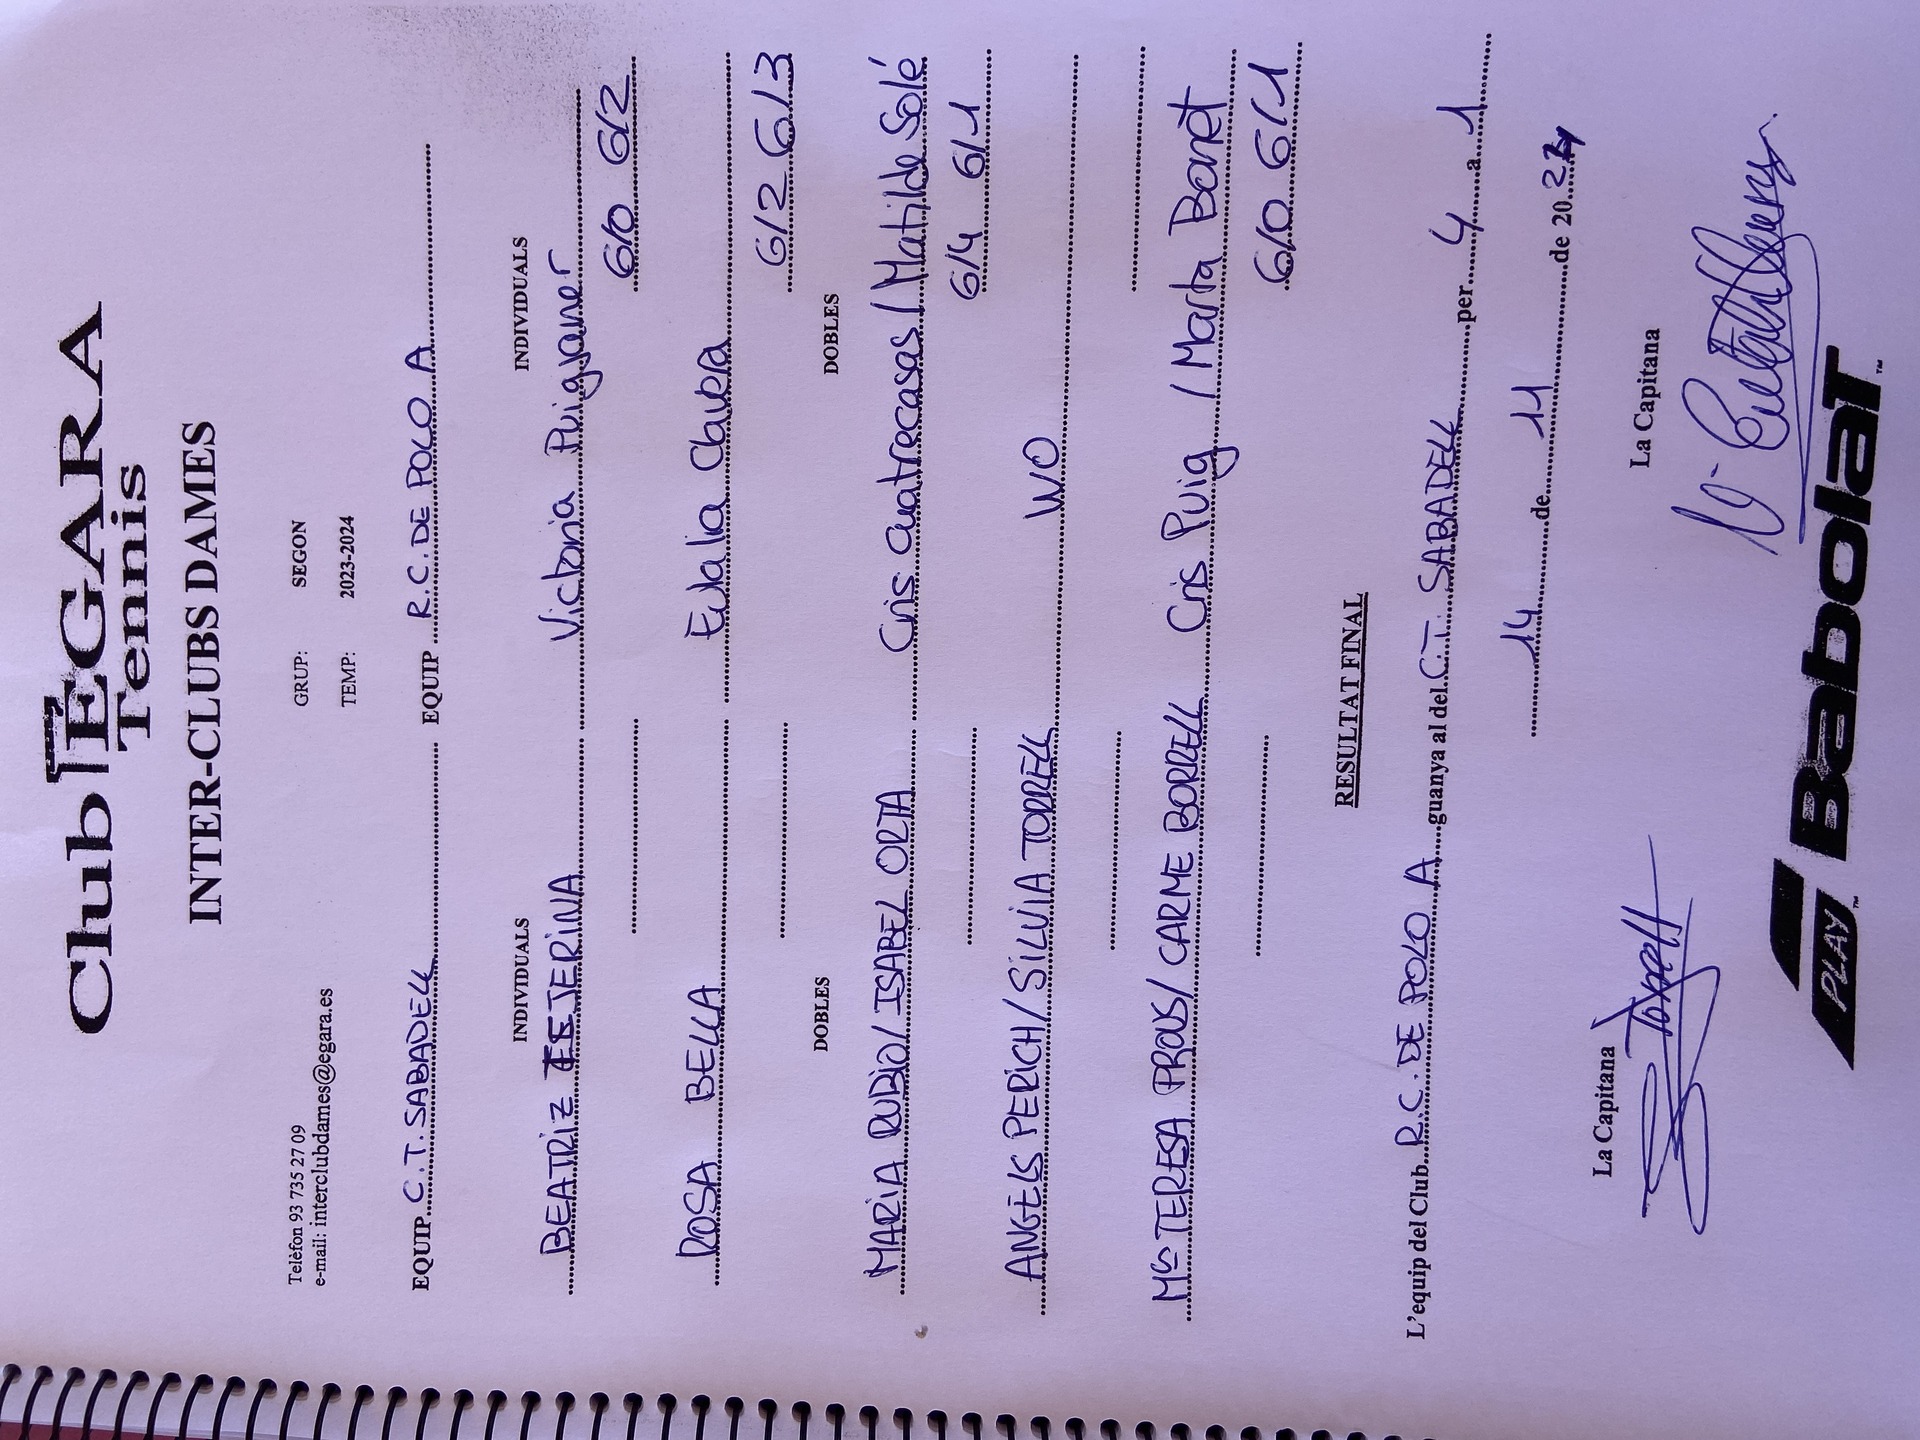 Club EGARA
Tennis
INTER-CLUBS DAMES
Telèfon 93 735 27 09
e-mail: interclubdames@egara.es
GRUP: SEGON
TEMP: 2023-2024
EQUIP C.T. SABADELL EQUIP R.C. DE POLO A
INDIVIDUALS INDIVIDUALS
BEATRIZ TEJERINA Victoria Puigjaner
6/0 6/2
ROSA BELLA Eulalia Clavera
6/2 6/3
DOBLES DOBLES
MARIA RUBIO / ISABEL ORTA Cris Cuatrecasas / Matilde Solé
6/4 6/1
ANGELS PERICH / SILVIA TORRELL WO
Mª TERESA PROUS / CARME BORRELL Cris Puig / Marta Bonet
6/0 6/1
RESULTAT FINAL
L'equip del Club R.C. DE POLO A guanya al del C.T. SABADELL per 4 a 1
14 de 11 de 20 24
La Capitana La Capitana
S Torrell
PLAY™ BabolaT™